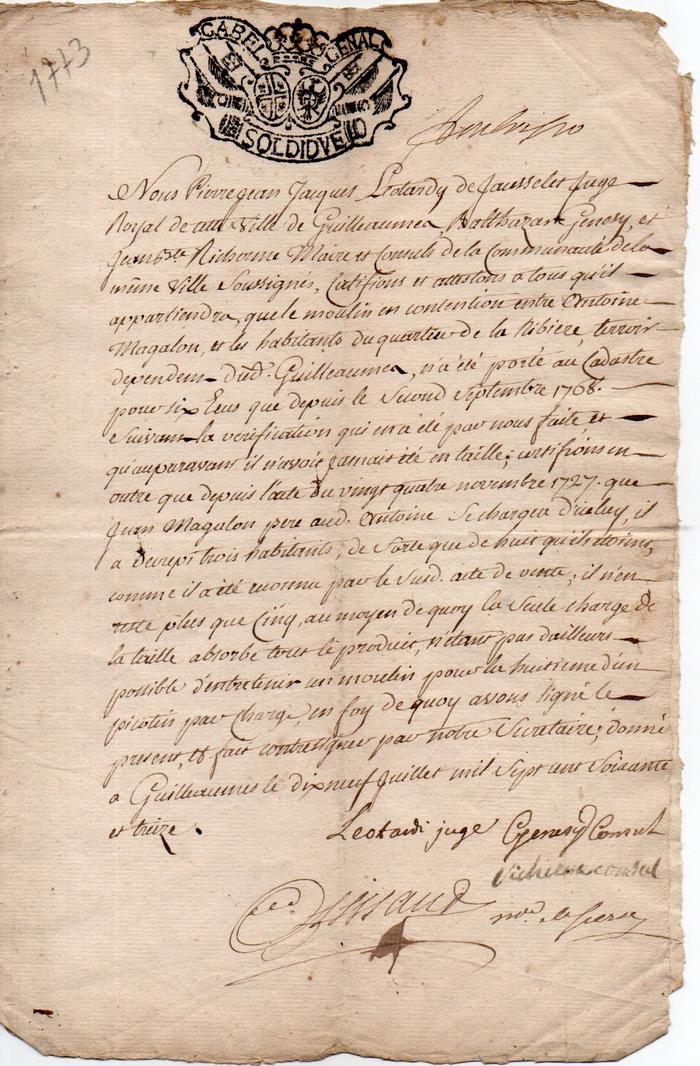 1773
GABEL GENAL
SOLDI DVE
Nous Pierre Jean Jacques Leotardy de Jausselet Juge
Royal de cette Ville de Guilleaumes, Balthazar Genesy, et
Jean Bte Richerme Maire et Consuls de la Communauté de la
même Ville Soussignés, Certifions et attestons a tous qu'il
appartiendra, que le moulin en contention entre Antoine
Magalon, et les habitants du quartier de la Ribiere, terroir
dependem dud. Guilleaumes, n'a été porté au Cadastre
pour six Ecus que depuis le Second Septembre 1768.
Suivant la verification qui en a été par nous faite, et
qu'auparavant il n'avoit Jamais été en taille; certifions en
outre que depuis l'acte du vingt quatre novembre 1727. que
Jean Magalon pere aud. Antoine Se chargea d'iceluy, il
a trois habitants, de Sorte que de huit qu'ils étoint,
comme il a été reconnu par le Susd. acte de vente, il n'en
reste plus que Cinq, au moyen de quoy la Seule charge de
la taille absorbe tout le produit, n'etant pas d'ailleurs
possible d'entretenir un moulin pour la huitieme d'un
picotin par Charge, en foy de quoy avons signé le
present, et fait contresigner par notre Secretaire; donné
a Guilleaumes le dixneuf Juillet mil Sept cent Soixante
et treize.
Leotardi juge Genesy Consul
consul